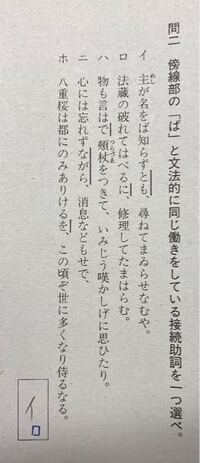 問二 傍線部の「ば」と文法的に同じ働きをしている接続助詞を一つ選べ。
イ 主が名をば知らずとも、尋ねてまゐらせなむや。
ロ 法蔵の破れてはべるに、修理してたまはらむ。
ハ 物も言はで頰杖をつきて、いみじう嘆かしげに思ひたり。
ニ 心には忘れずながら、消息などもせで、
ホ 八重桜は都にのみありけるを、この頃ぞ世に多くなり侍るなる。
イ
ロ